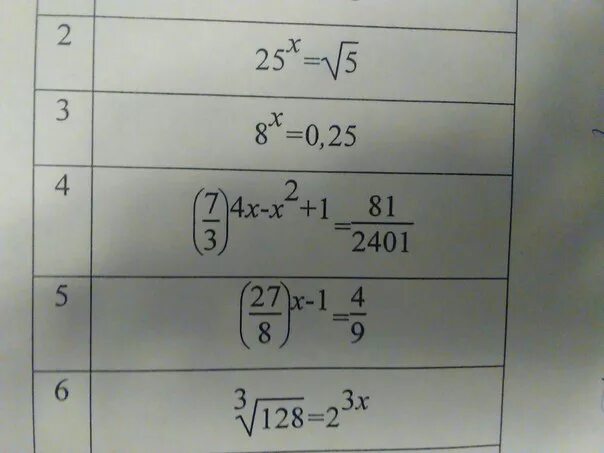 2 25^x=√5
3 8^x=0,25
4 (7/3)^{4x-x^2+1}=81/2401
5 (27/8)^{x-1}=4/9
6 ∛128=2^{3x}